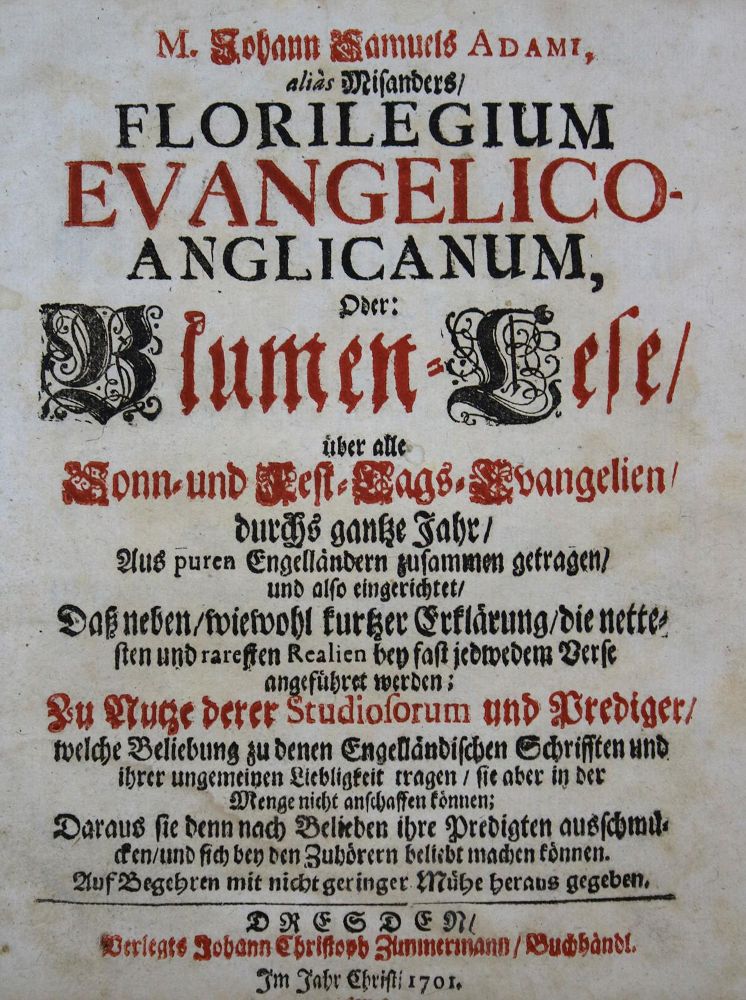 M. Johann Samuels ADAMI,
aliàs Misanders/
FLORILEGIUM
EVANGELICO-
ANGLICANUM,
Oder:
Blumen-Lese/
über alle
Sonn- und Fest-Tags-Evangelien/
durchs gantze Jahr/
Aus puren Engelländern zusammen getragen/
und also eingerichtet/
Daß neben/wiewohl kurtzer Erklärung/die nette-
sten und raresten Realien bey fast jedwedem Verse
angeführet werden;
Zu Nutze derer Studiosorum und Prediger/
welche Beliebung zu denen Engelländischen Schrifften und
ihrer ungemeinen Liebligkeit tragen/ sie aber in der
Menge nicht anschaffen können;
Daraus sie denn nach Belieben ihre Predigten ausschmü-
cken/und sich bey den Zuhörern beliebt machen können.
Auf Begehren mit nicht geringer Mühe heraus gegeben.
DRESDEN/
Verlegts Johann Christoph Zimmermann/ Buchhändl.
Im Jahr Christi 1701.